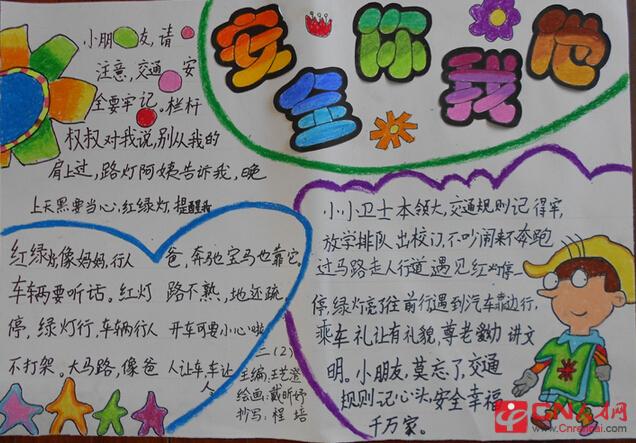 安全你我他
小朋友,请
注意,交通安
全要牢记。栏杆
叔叔对我说,别从我的
肩上过,路灯阿姨告诉我,晚
上天黑要当心,红绿灯,提醒我
红绿灯像妈妈,行人
车辆要听话。红灯
停,绿灯行,车辆行人
不打架。大马路,像爸
爸,奔驰宝马也靠它,
路不熟,地还疏,
开车可要小心啦
人让车,车让
人
二(2)
主编:王艺澄
绘画:戴昕妤
抄写:程培
小小卫士本领大,交通规则记得牢,
放学排队出校门,不吵闹来不奔跑
过马路走人行道,遇见红灯停一
停,绿灯亮了往前行遇到汽车靠边行,
乘车礼让有礼貌,尊老敬幼讲文
明。小朋友,莫忘了,交通
规则记心头,安全幸福
千万家。
www.Cnrencai.com